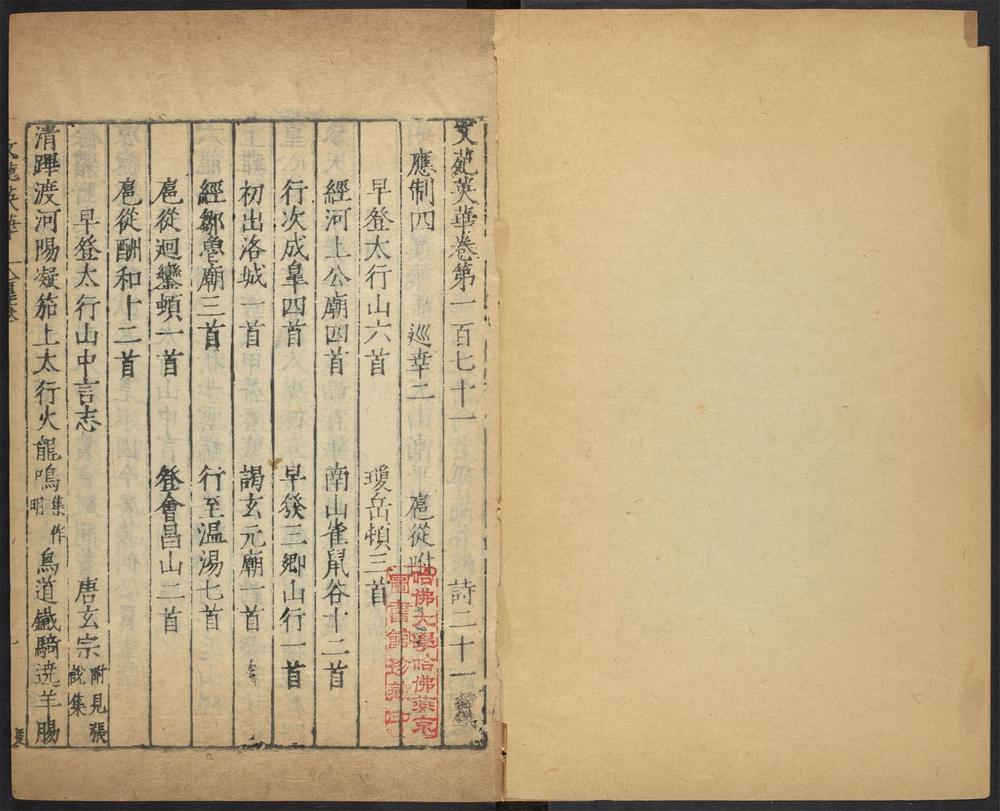 文苑英華卷第一百七十一 詩二十一
應制四 巡幸二 扈從附
早登太行山六首 瓊岳頓三首
經河上公廟四首 南山雀鼠谷十二首
行次成皐四首 早發三鄉山行一首
初出洛城一首 謁玄元廟一首
經鄒魯廟三首 行至温湯七首
扈從迴鑾頓一首 登會昌山二首
扈從酬和十二首
早登太行山中言志 唐玄宗 附見張說集
清蹕渡河陽凝笳上太行火龍鳴 集作明 鳥道鐵騎遶羊腸
哈佛大學哈佛燕京
圖書館珍藏印
文苑英華